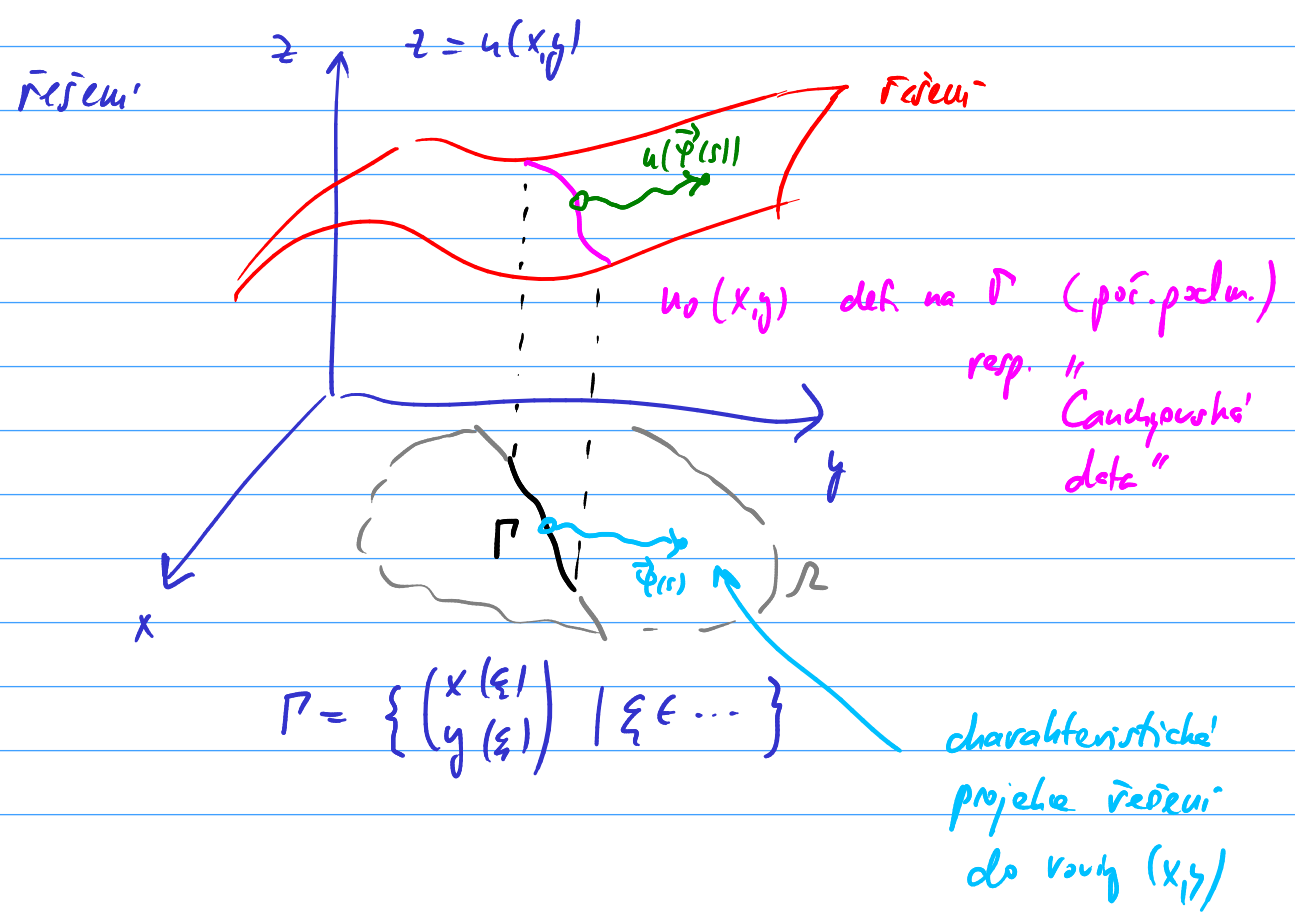 z
z = u(x,y)
řešení
řešení
u(φ⃗(s))
u₀(x,y) def na Γ (poč. podm.)
resp. "
Cauchyovská
data"
y
Γ
φ⃗(s)
Ω
x
Γ = { ( x(ξ)
y(ξ) ) | ξ ∈ ··· }
charakteristická
projekce řešení
do roviny (x,y)